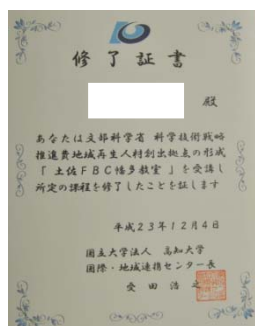 修了証書
殿
あなたは文部科学省 科学技術戦略
推進費地域再生人材創出拠点の形成
「土佐FBC幡多教室」を受講し
所定の課程を修了したことを証します
平成23年12月4日
国立大学法人 高知大学
国際・地域連携センター長
受田 浩之